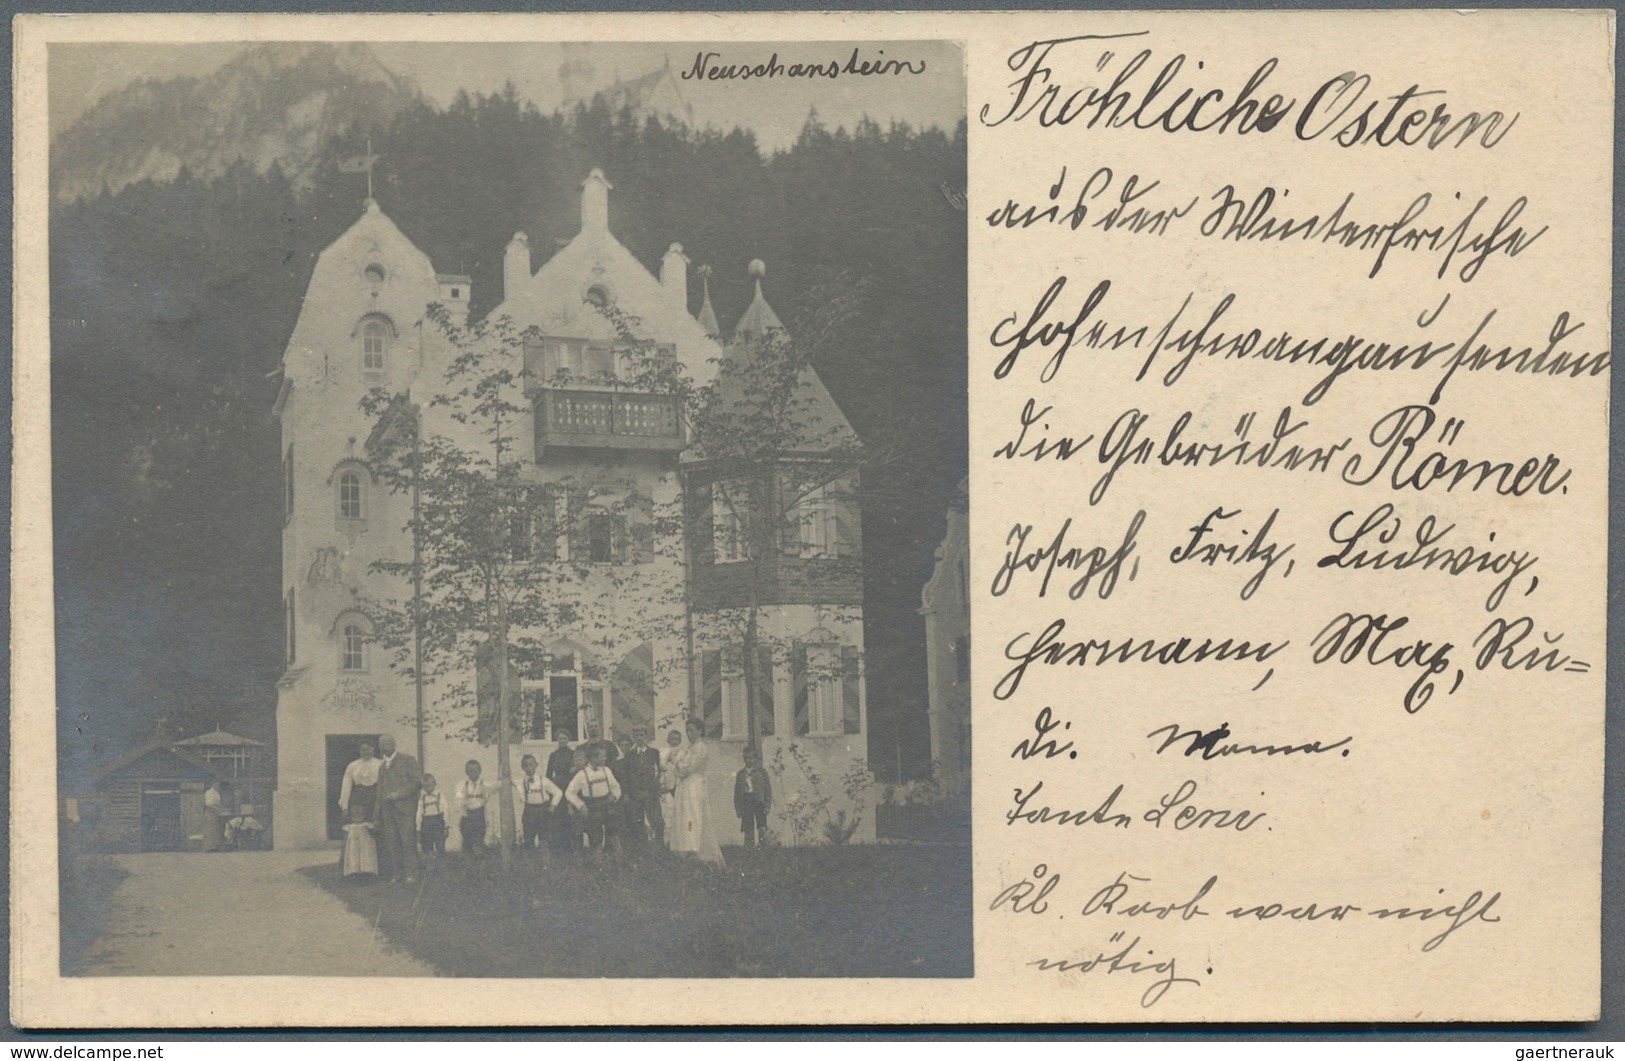 Neuschanstein
Fröhliche Ostern
aus der Winterfrische
Hohenschwangau senden
die Gebrüder Römer.
Joseph, Fritz, Ludwig,
Hermann, Max, Ru=
di. Mama.
Tante Leni.
Kl. Korb war nicht
nötig.
www.delcampe.net
gaertnerauk